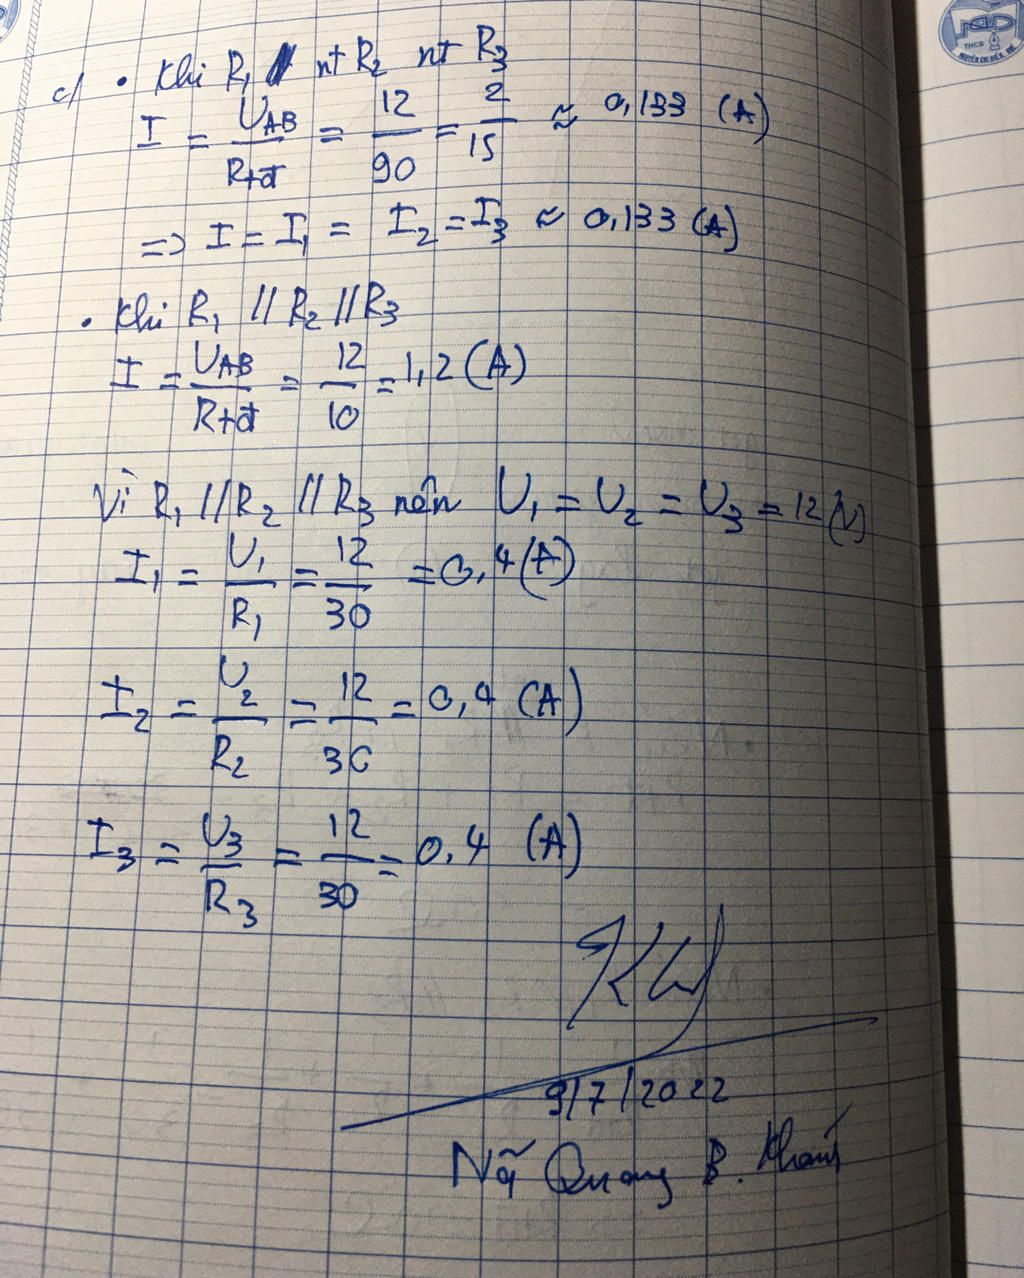 c/ • Khi R₁ nt R₂ nt R₃
I = U_AB / R_tđ = 12/90 = 2/15 ≈ 0,133 (A)
=> I = I₁ = I₂ = I₃ ≈ 0,133 (A)
• Khi R₁ // R₂ // R₃
I = U_AB / R_tđ = 12/10 = 1,2 (A)
Vì R₁ // R₂ // R₃ nên U₁ = U₂ = U₃ = 12 (V)
I₁ = U₁/R₁ = 12/30 = 0,4 (A)
I₂ = U₂/R₂ = 12/30 = 0,4 (A)
I₃ = U₃/R₃ = 12/30 = 0,4 (A)
9/7/2022
Quang B.
THCS